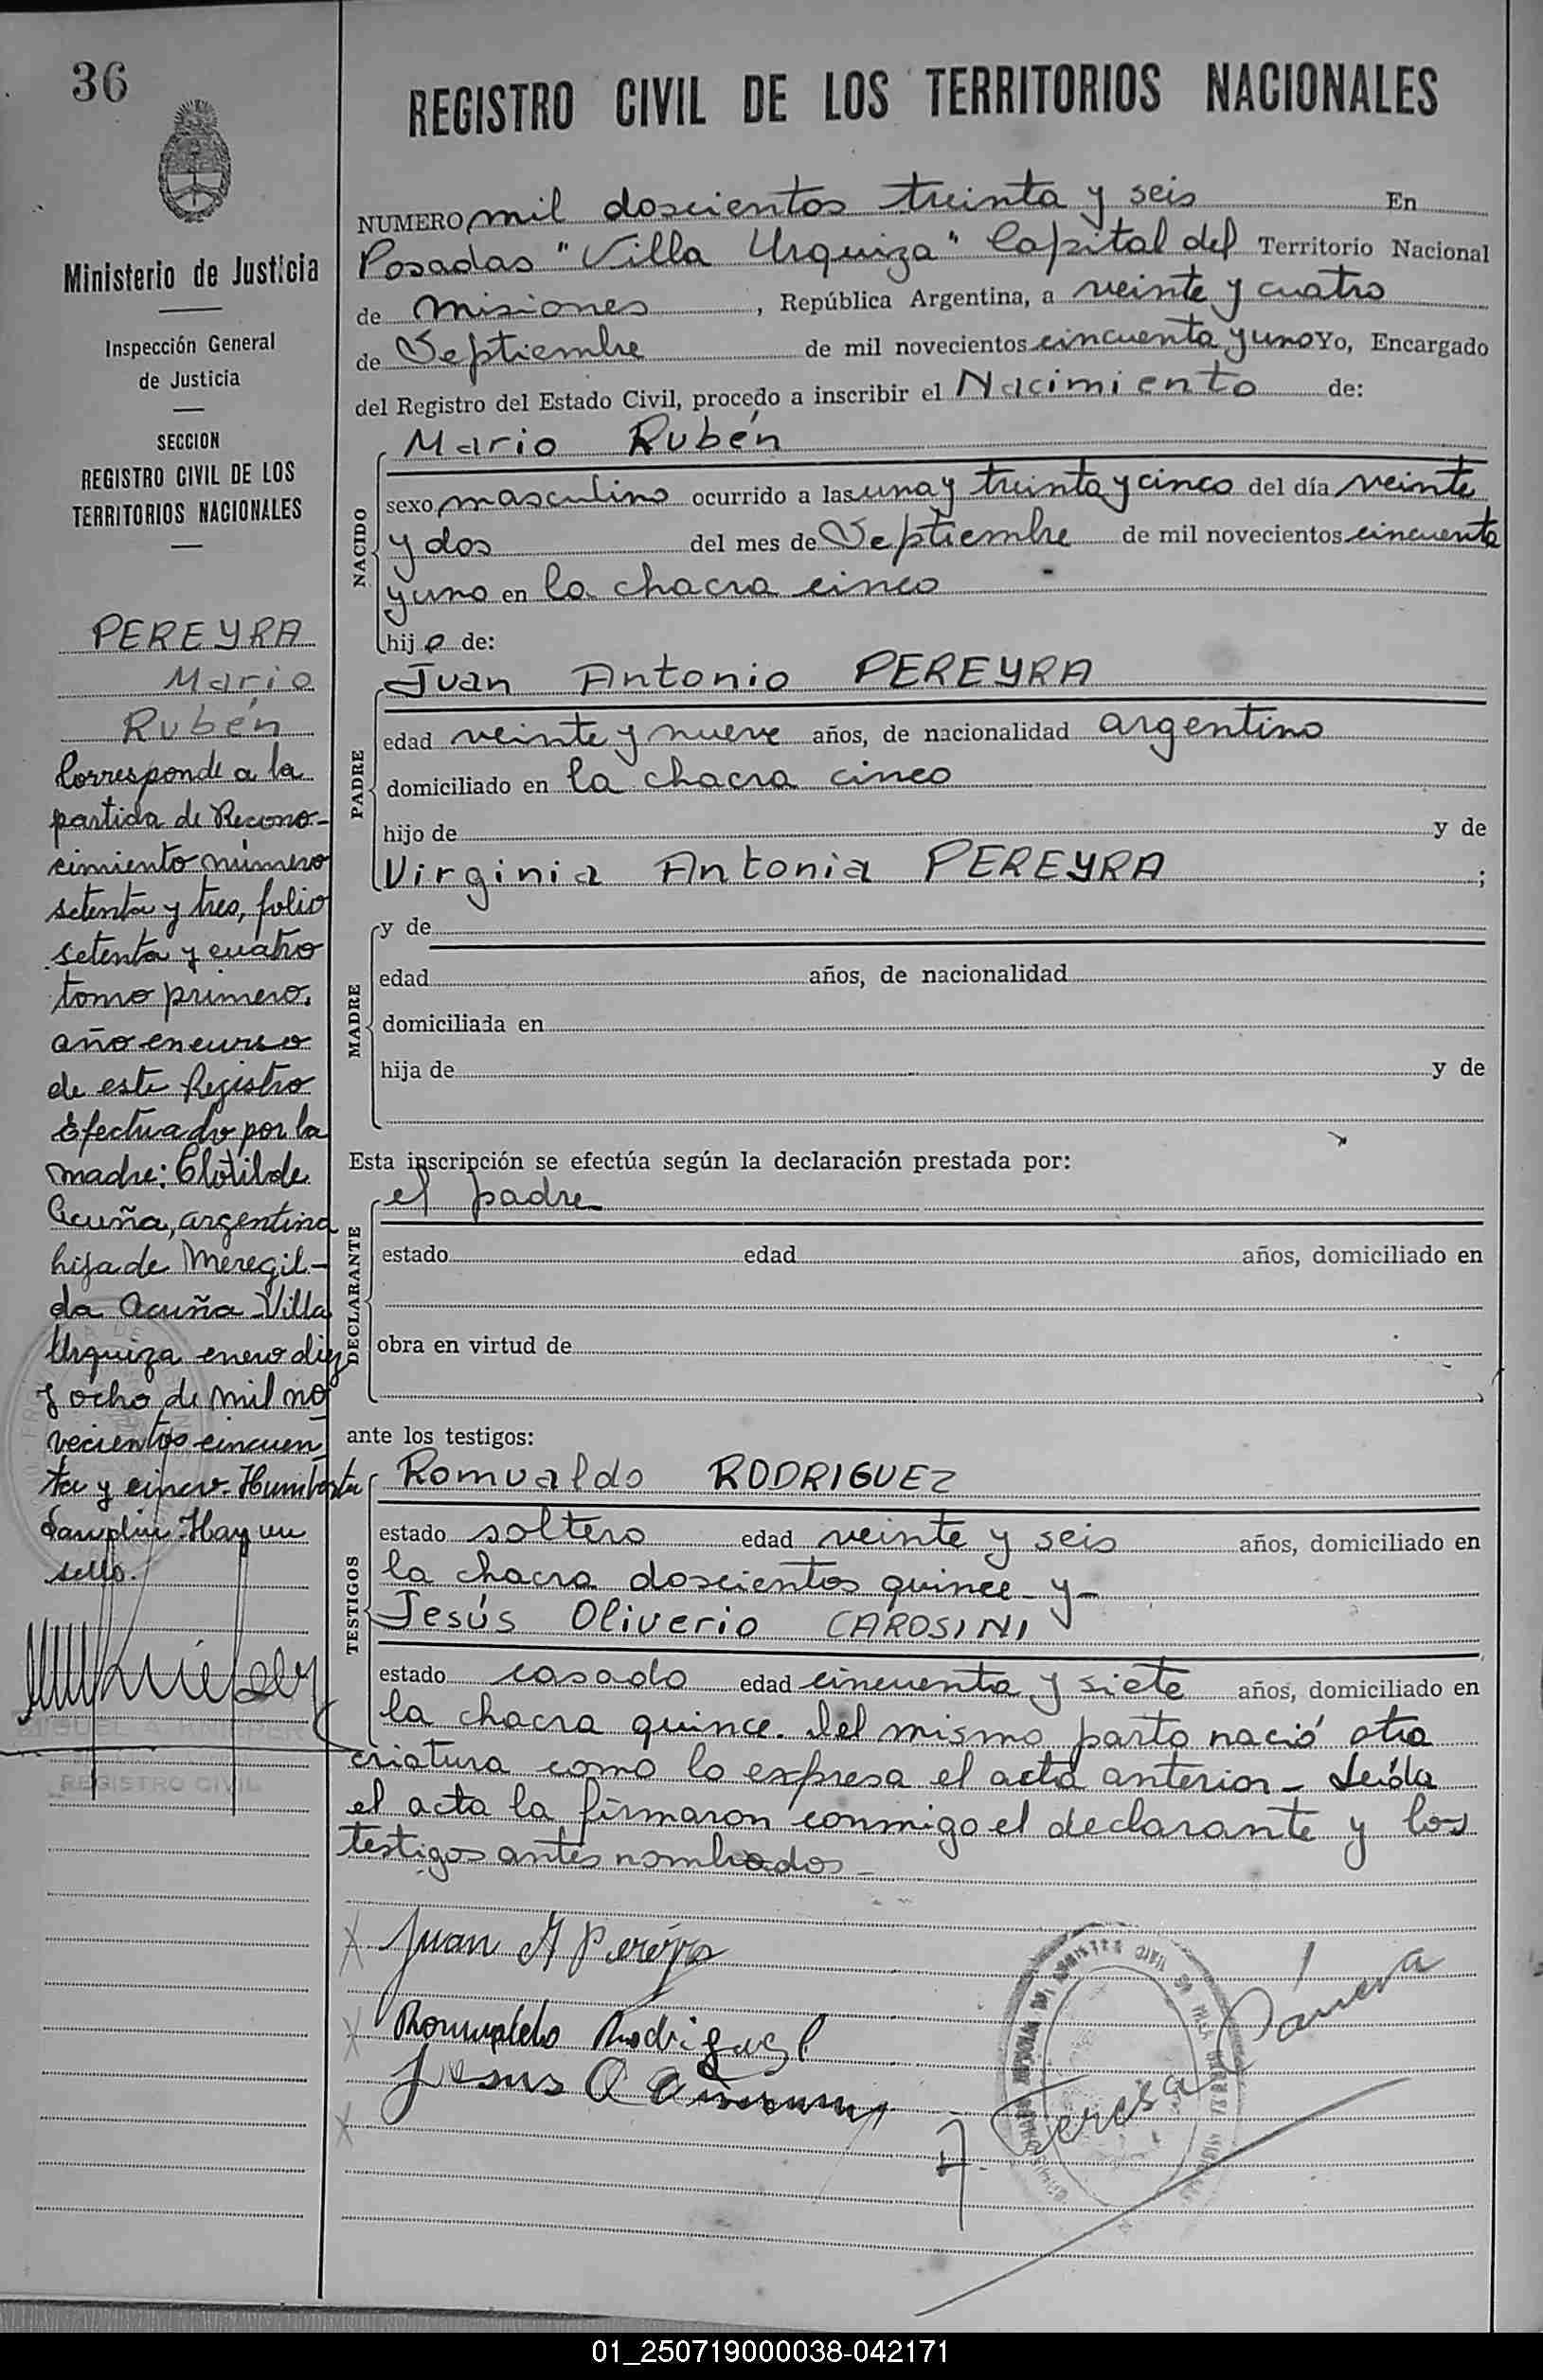 36
Ministerio de Justicia
Inspección General
de Justicia
SECCION
REGISTRO CIVIL DE LOS
TERRITORIOS NACIONALES
PEREYRA
Mario
Rubén
Corresponde a la
partida de Recono-
cimiento número
setenta y tres, folio
setenta y cuatro
tomo primero,
año en curso
de este Registro
Efectuado por la
madre: Clotilde
Acuña, argentina
hija de Meregil-
da Acuña Villa
Urquiza enero diez
y ocho de mil no
vecientos cincuen
ta y cinco. Humberto
Hay un
sello.
MIGUEL A. KNIEPER
REGISTRO CIVIL
REGISTRO CIVIL DE LOS TERRITORIOS NACIONALES
NUMERO mil doscientos treinta y seis En
Posadas "Villa Urquiza" Capital del Territorio Nacional
de Misiones, República Argentina, a veinte y cuatro
de Septiembre de mil novecientos cincuenta y uno Yo, Encargado
del Registro del Estado Civil, procedo a inscribir el Nacimiento de:
NACIDO
Mario Rubén
sexo masculino ocurrido a las una y treinta y cinco del día veinte
y dos del mes de Septiembre de mil novecientos cincuenta
y uno en la chacra cinco
hijo de:
PADRE
Juan Antonio PEREYRA
edad veinte y nueve años, de nacionalidad argentino
domiciliado en la chacra cinco
hijo de y de
Virginia Antonia PEREYRA ;
MADRE
y de
edad años, de nacionalidad
domiciliada en
hija de y de
Esta inscripción se efectúa según la declaración prestada por:
DECLARANTE
el padre
estado edad años, domiciliado en
obra en virtud de
ante los testigos:
TESTIGOS
Romualdo RODRIGUEZ
estado soltero edad veinte y seis años, domiciliado en
la chacra doscientos quince y-
Jesús Oliverio CAROSINI
estado casado edad cincuenta y siete años, domiciliado en
la chacra quince. Del mismo parto nació otra
criatura como lo expresa el acta anterior - Leída
el acta la firmaron conmigo el declarante y los
testigos antes nombrados -
Juan A Pereyra
Romualdo Rodriguez
Jesus O
A. Teresa
01_250719000038-042171